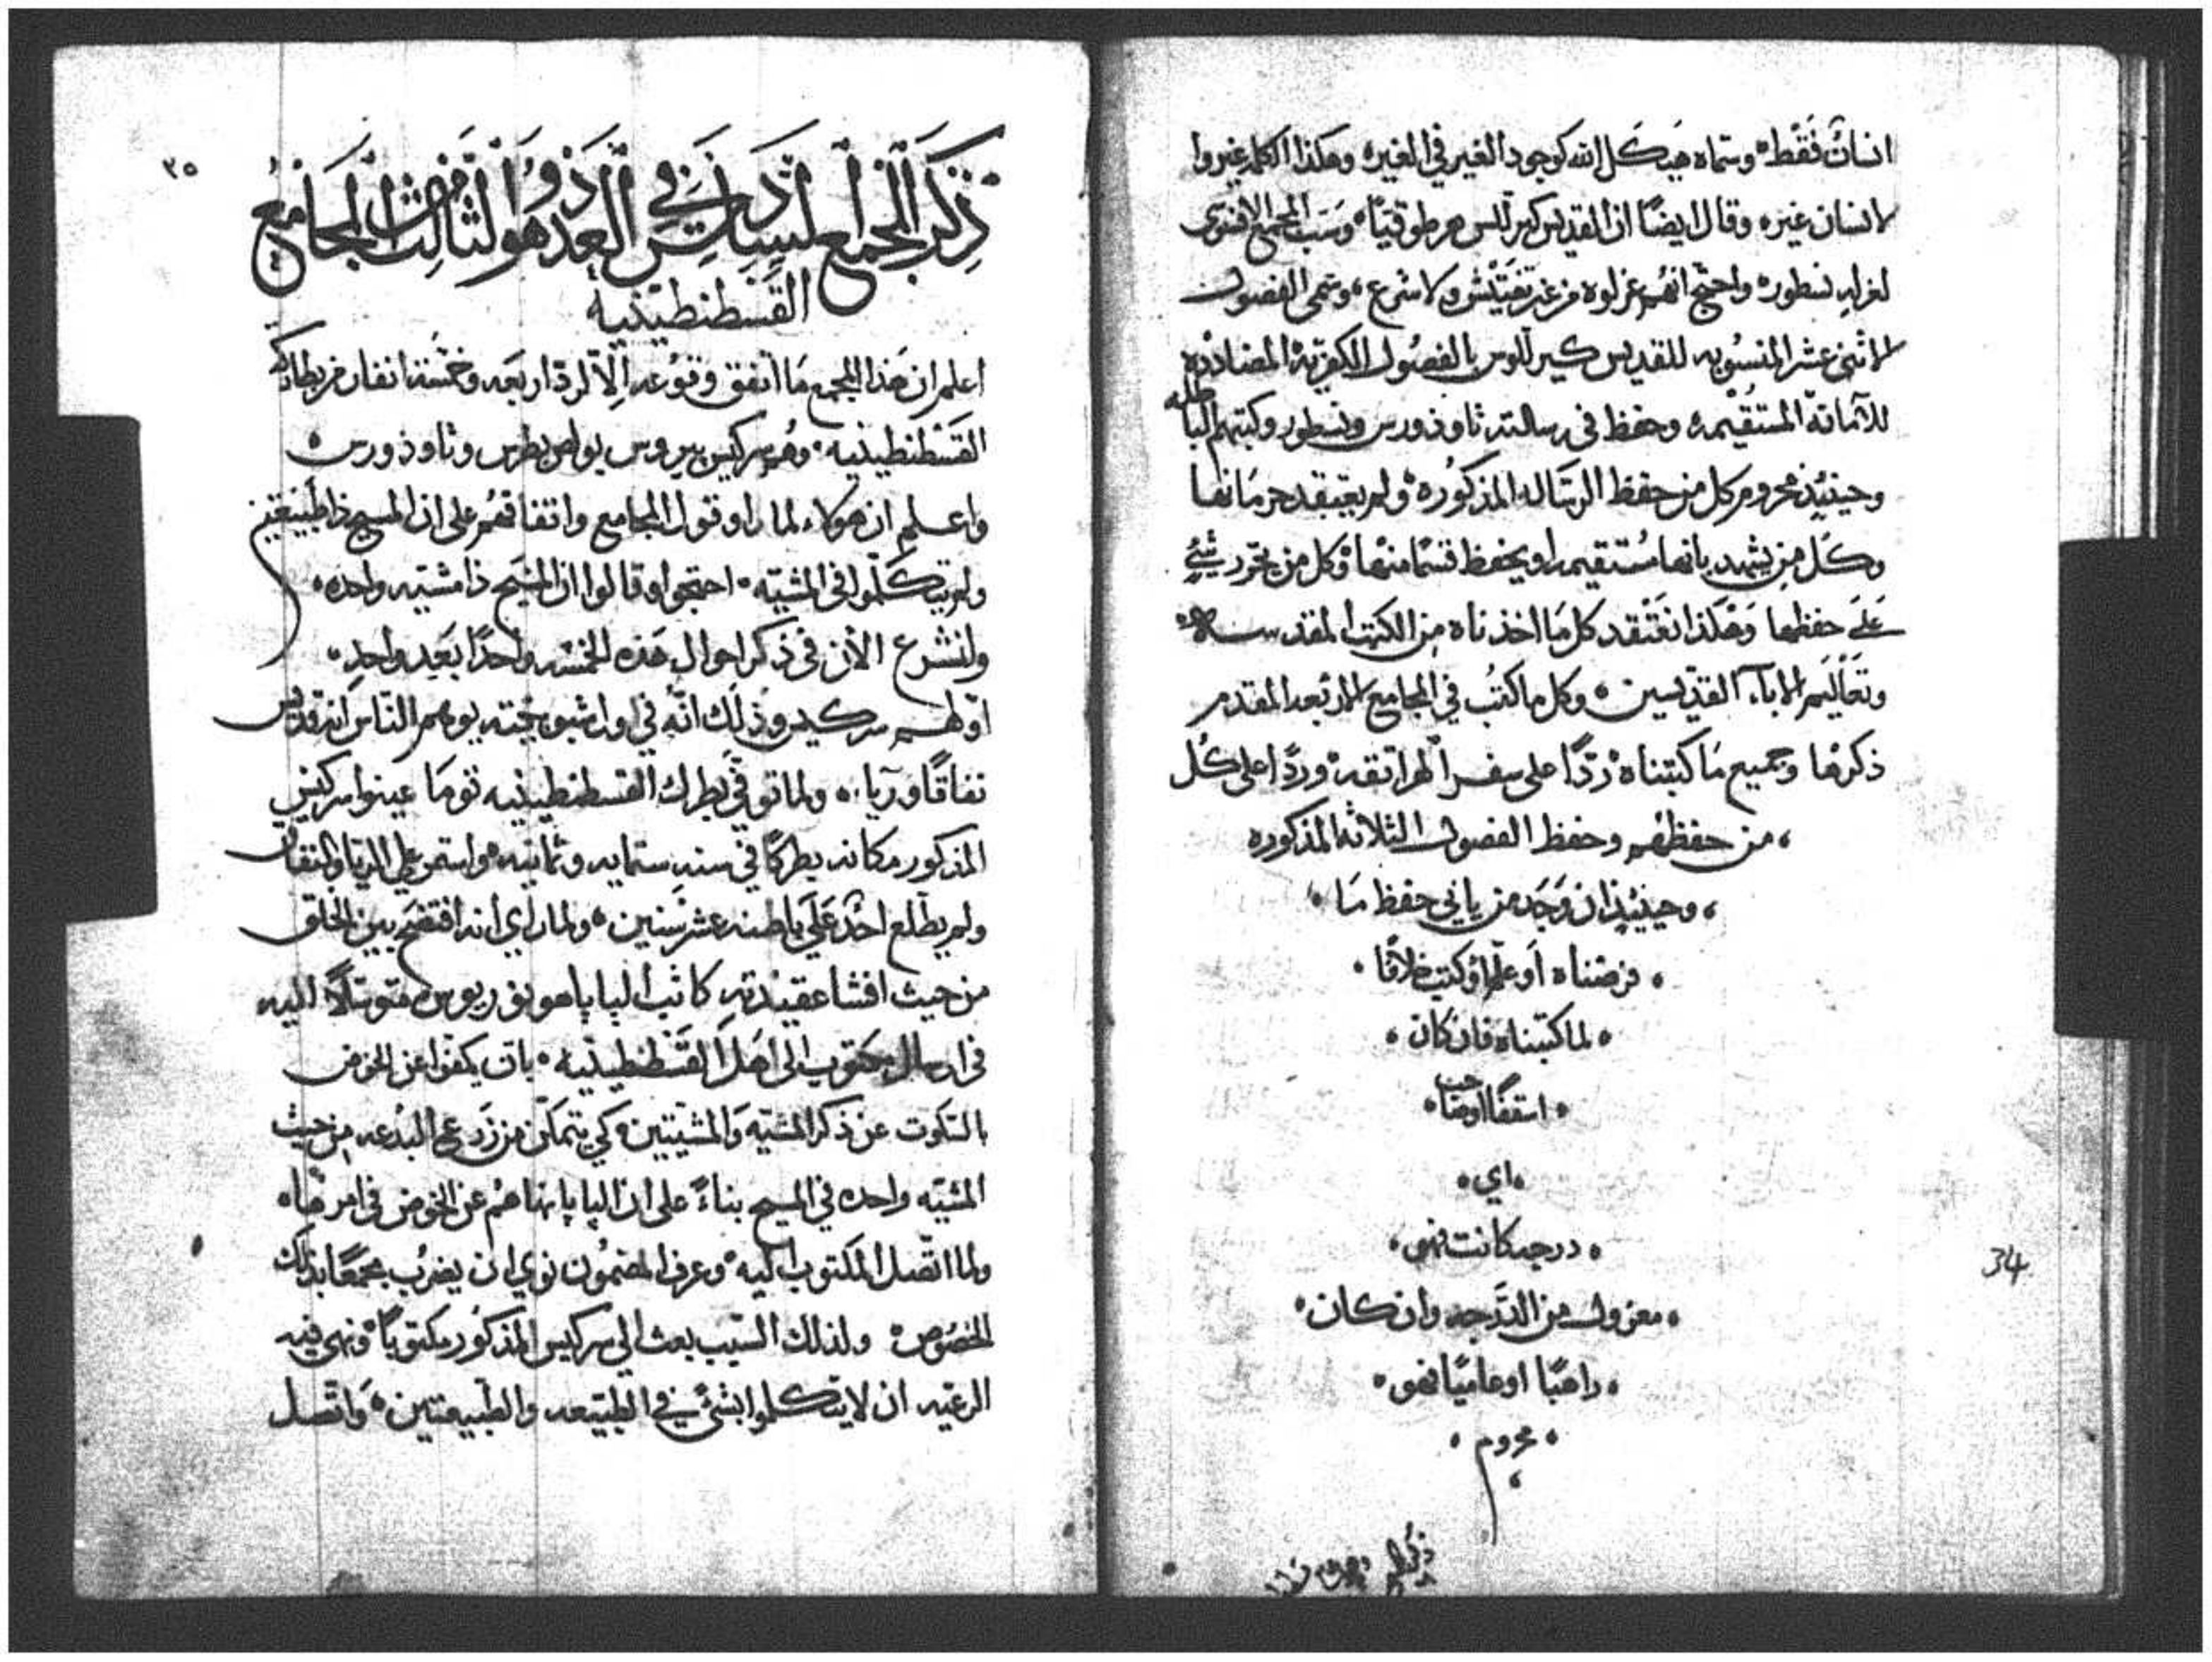 انسانٌ فَقَطْ وسمّاه هيكل الله كوجود الغير في الغير وهكذا الكلمه غيروا
لانسان غيره وقال ايضًا ان القديس كيرللس هرطوقيًا وسَبّ المجمع الافسوسي
لعزله نسطور واحتج انهم عزلوه من غير تفتيش ولا شرع وسمى الفصول
الاثني عشر المنسوبه للقديس كيرللوس بالفصول الكفريّه المضاددة
للامانة المستقيمه وحفظ في رسالته ثاوذورس ونسطور وكتبهم الباطله
وحينيذ محروم كل من حفظ الرساله المذكوره ولم يعتقد حرمانها
وكل من يشهد بانها مستقيمه او يحفظ قسمًا منها وكل من يحرر شيء
على حفظها وهكذا نعتقد كل ما اخذناه من الكتب المقدسه
وتعاليم الاباء القديسين وكل ما كتب في المجامع الاربعه المقدم
ذكرها وجميع ما كتبناه ردًا على سفر الهراتقه وردًا على كل
من حفظهم وحفظ الفصول الثلاثه المذكوره
وحينيذ ان وجد من يابي حفظ ما
فرضناه او علّم او كتب خلافًا
لما كتبناه فان كان
اسقفًا او صاحب
اي
درجه كانت فهو
معزول من الدّرجه وان كان
راهبًا او عاميًا فهو
محروم
34
٣٥
ذكر المجمع السادس في العدد وهو الثالث من المجامع
القسطنطينية
اعلم ان هذا المجمع ما اتفق وقوعه الا لرد اربعه وخمسة انفار من بطاركة
القسطنطينيه وهم سركيس بيروس بولص بطرس وثاوذورس
واعلم ان هولاء لما راوا قول المجامع واتفاقهم على ان المسيح ذا طبيعتين
ولم يتكلّموا في المشيّه احتجوا وقالوا ان المسيح ذا مشيّه واحده
ولنشرع الان في ذكر احوال هذه الخمسه واحدًا بعد واحدٍ
اولهم سركيس وذلك انّه في اول شبوبيّته يوهم الناس انه قديس
نفاقًا وريا ولما توفي بطرك القسطنطينيه توما عينوا سركيس
المذكور مكانه بطركًا في سنه ستمايه وثمانيه واستمر على الريا والنفاق
ولم يطّلع احدٌ على باطنه عشر سنين ولما راي انه افتضح بين الخلق
من حيث افشا عقيدته كاتب البابا هونوريوس متوسّلًا اليه
في ارسال مكتوب الى اهل القسطنطينيه بان يكفوا عن الخوض
بالسكوت عن ذكر المشيّه والمشيّتين كي يتمكّن من زرع البدعه من حيث
المشيّه واحده في المسيح بناءً على ان البابا نهاهم عن الخوض في امرها
ولما اتصل المكتوب اليه وعرف المضمون نوي ان يضرب مجمعًا بذلك
الخصوص ولذلك السبب بعث الي سركيس المذكور مكتوبًا ونهى فيه
الرعيّه ان لا يتكلموا بشيء في الطبيعه والطبيعتين واتصل